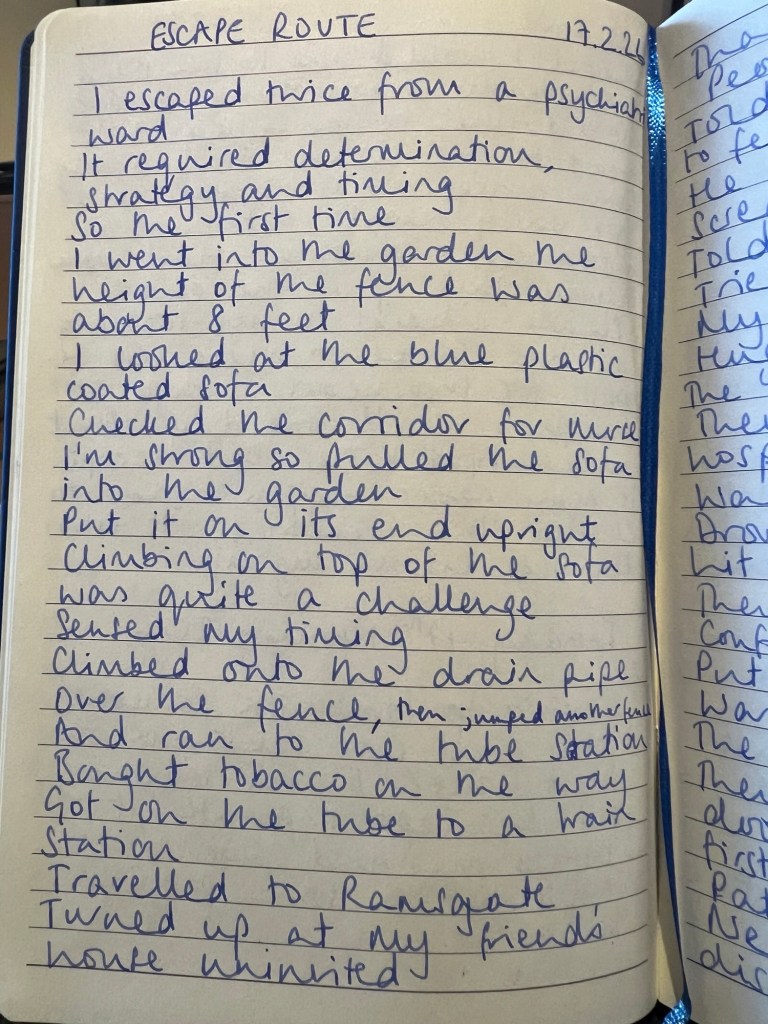 ESCAPE ROUTE 17.2.26
I escaped twice from a psychiatric
ward
It required determination,
strategy and timing
So the first time
I went into the garden the
height of the fence was
about 8 feet
I looked at the blue plastic
coated sofa
Checked the corridor for nurse
I'm strong so pulled the sofa
into the garden
Put it on its end upright
Climbing on top of the sofa
was quite a challenge
Sensed my timing
Climbed onto the drain pipe
Over the fence, then jumped another fence
And ran to the tube station
Bought tobacco on the way
Got on the tube to a train
station
Travelled to Ramsgate
Turned up at my friend's
house uninvited
The
Told
to
He
Told
My
The
Then
The
Put
The
Then
first